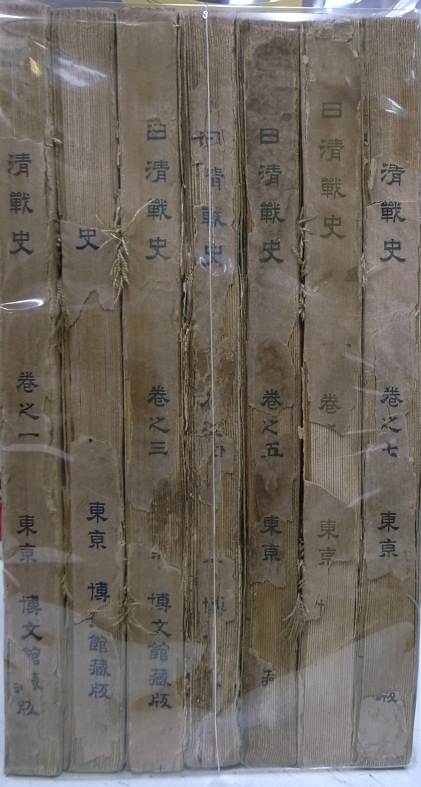 清戰史 卷之一 東京 博文館藏版
史 東京 博館藏版
日清戰史 卷之三 博文館藏版
清戰史
日清戰史 卷之五 東京
日清戰史 卷 東京
清戰史 卷之七 東京 版